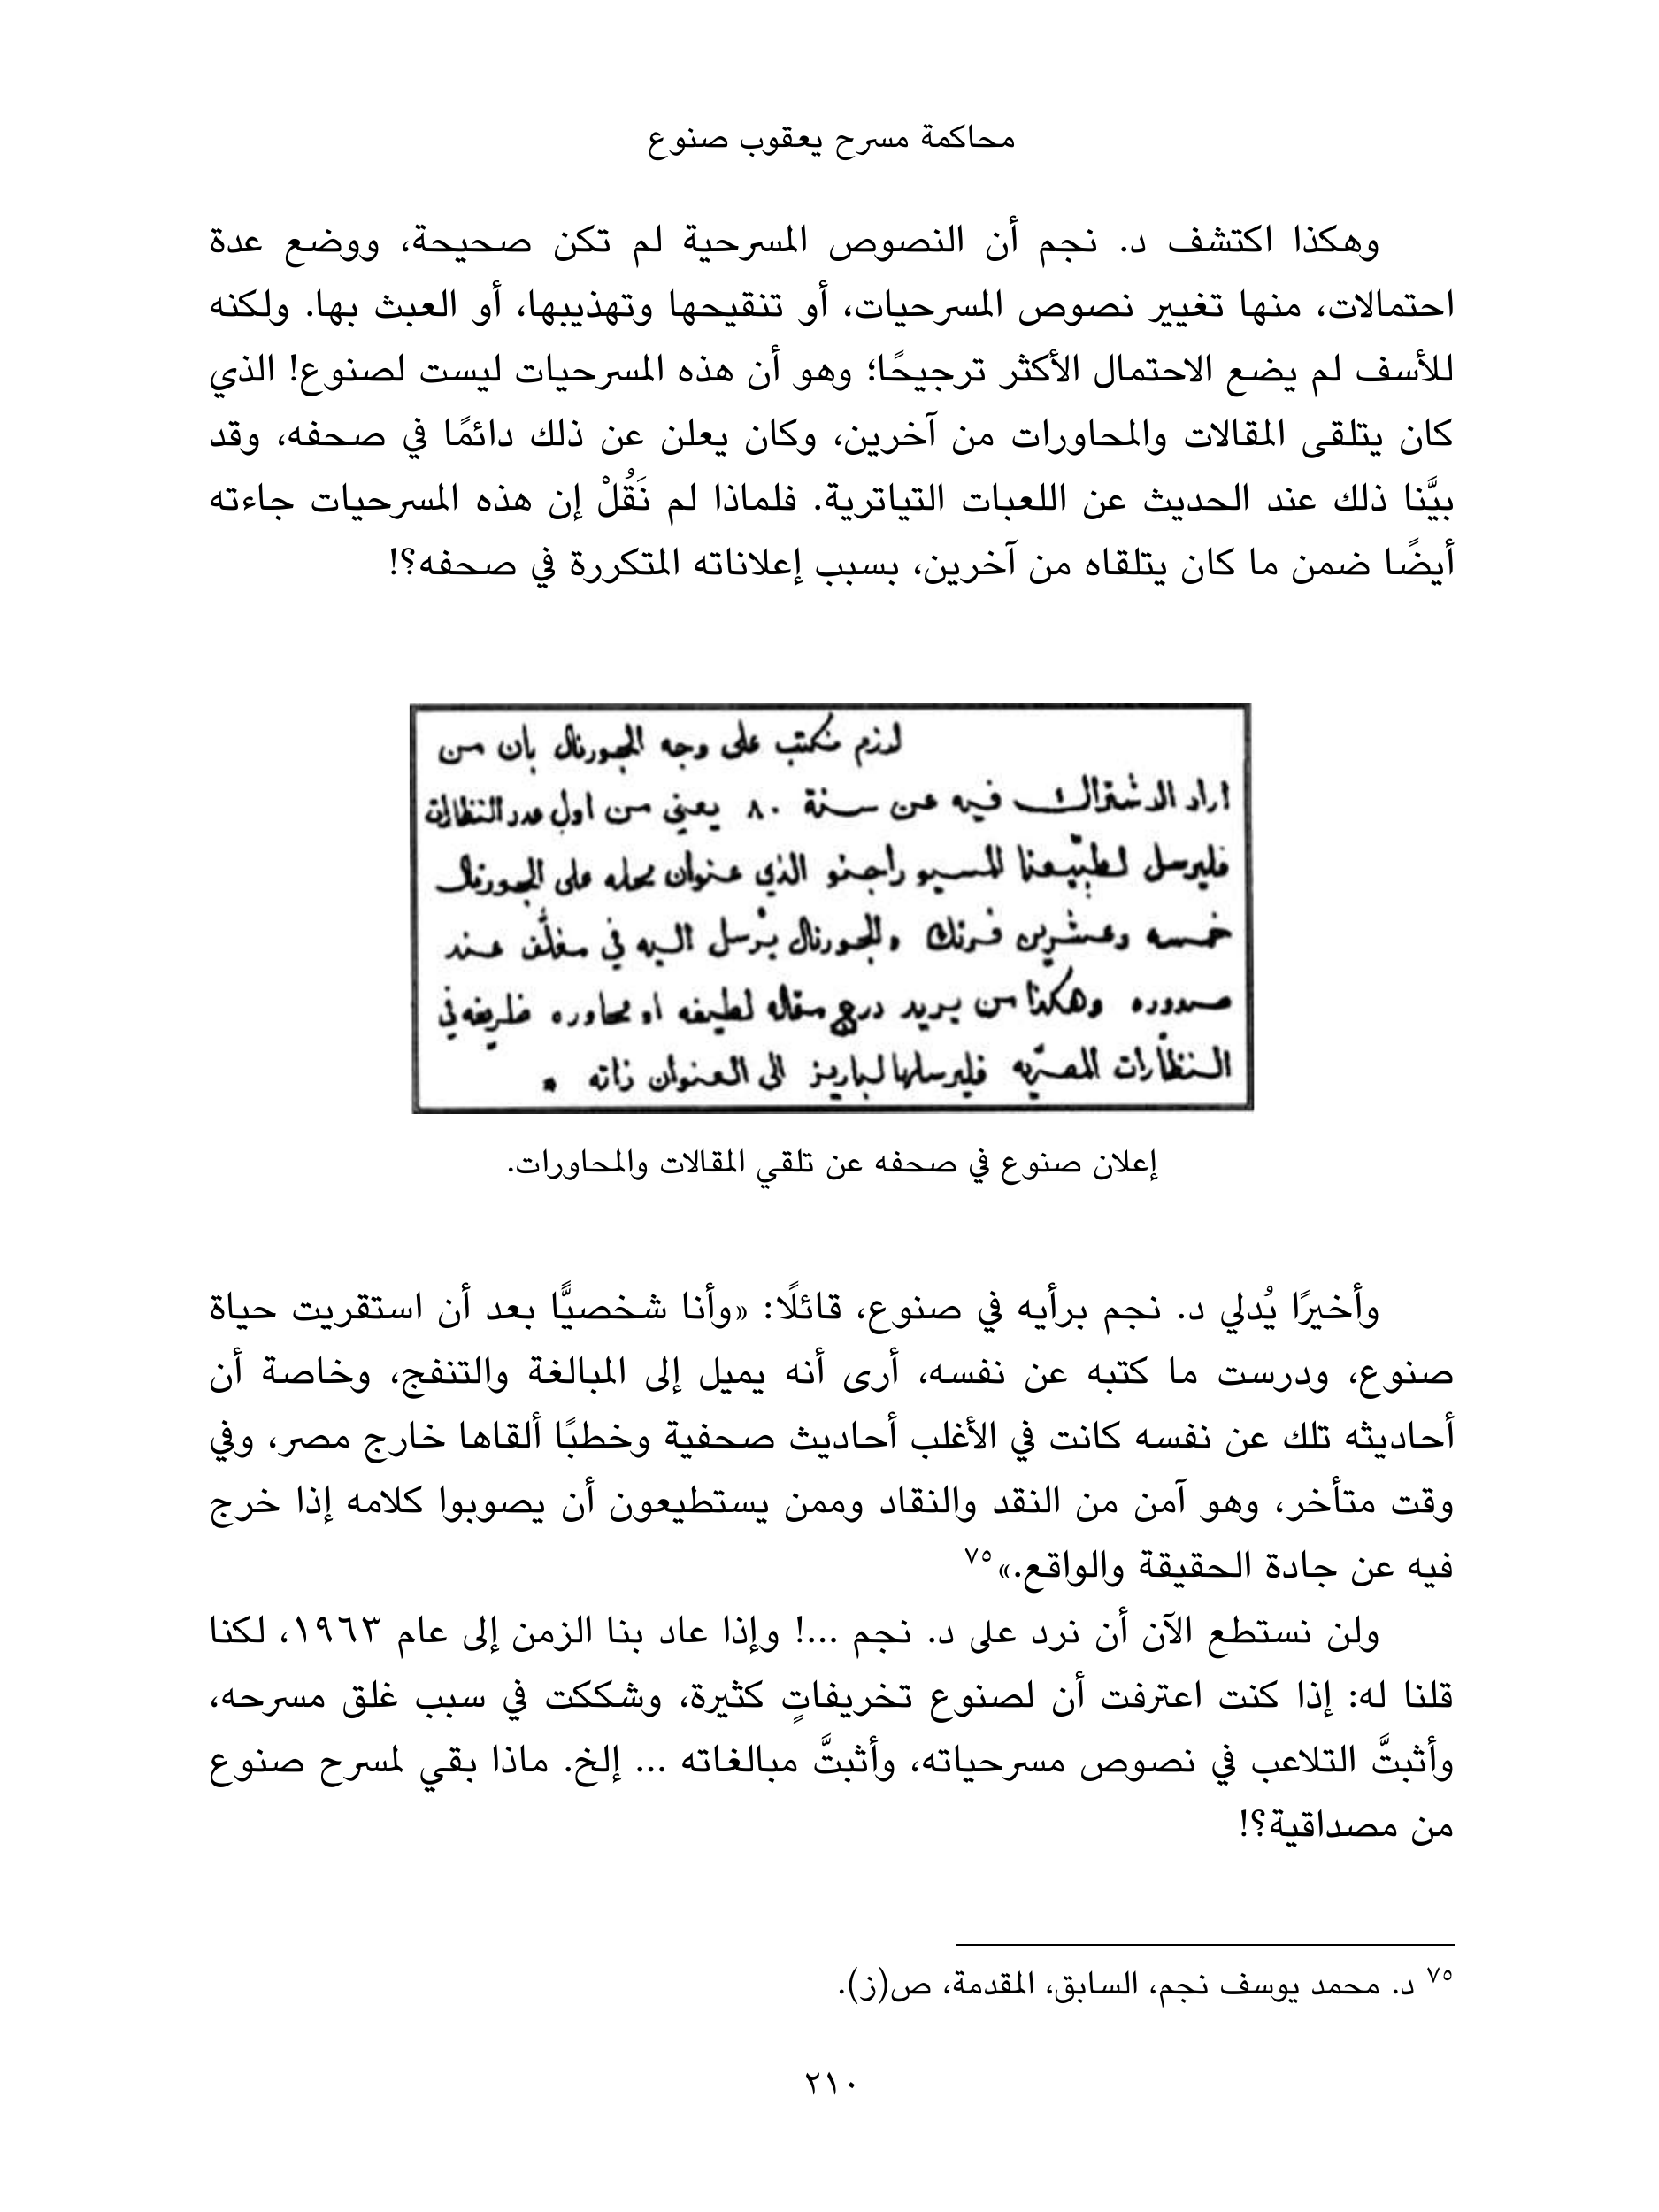 محاكمة مسرح يعقوب صنوع
وهكذا اكتشف د. نجم أن النصوص المسرحية لم تكن صحيحة، ووضع عدة
احتمالات، منها تغيير نصوص المسرحيات، أو تنقيحها وتهذيبها، أو العبث بها. ولكنه
للأسف لم يضع الاحتمال الأكثر ترجيحًا؛ وهو أن هذه المسرحيات ليست لصنوع! الذي
كان يتلقى المقالات والمحاورات من آخرين، وكان يعلن عن ذلك دائمًا في صحفه، وقد
بيَّنا ذلك عند الحديث عن اللعبات التياترية. فلماذا لم نَقُلْ إن هذه المسرحيات جاءته
أيضًا ضمن ما كان يتلقاه من آخرين، بسبب إعلاناته المتكررة في صحفه؟!
لازم نكتب على وجه الجورنال بان من
اراد الاشتراك فيه عن سنة ٨٠ يعني من اول عدد النظارات
فليرسل لطبيعنا المسيو راجنو الذي عنوان محله على الجورنال
خمسه وعشرين فرنك والجورنال يرسل اليه في مغلّف عند
صدوره وهكذا من يريد درج مقاله لطيفه او محاوره ظريفه في
النظّارات المصريّه فليرسلها لباريز الى العنوان ذاته *
إعلان صنوع في صحفه عن تلقي المقالات والمحاورات.
وأخيرًا يُدلي د. نجم برأيه في صنوع، قائلًا: «وأنا شخصيًّا بعد أن استقريت حياة
صنوع، ودرست ما كتبه عن نفسه، أرى أنه يميل إلى المبالغة والتنفج، وخاصة أن
أحاديثه تلك عن نفسه كانت في الأغلب أحاديث صحفية وخطبًا ألقاها خارج مصر، وفي
وقت متأخر، وهو آمن من النقد والنقاد وممن يستطيعون أن يصوبوا كلامه إذا خرج
فيه عن جادة الحقيقة والواقع.»٧٥
ولن نستطع الآن أن نرد على د. نجم …! وإذا عاد بنا الزمن إلى عام ١٩٦٣، لكنا
قلنا له: إذا كنت اعترفت أن لصنوع تخريفاتٍ كثيرة، وشككت في سبب غلق مسرحه،
وأثبتَّ التلاعب في نصوص مسرحياته، وأثبتَّ مبالغاته … إلخ. ماذا بقي لمسرح صنوع
من مصداقية؟!
٧٥ د. محمد يوسف نجم، السابق، المقدمة، ص(ز).
٢١٠